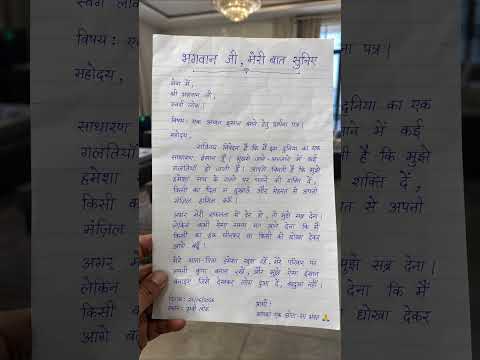 भगवान जी, मेरी बात सुनिए
सेवा में,
श्री भगवान जी,
स्वर्ग लोक।
विषय: एक अच्छा इंसान बनने हेतु प्रार्थना पत्र।
महोदय,
सविनय निवेदन है कि मैं इस दुनिया का एक
साधारण इंसान हूँ। मुझसे जाने-अनजाने में कई
गलतियाँ हो जाती हैं। आपसे विनती है कि मुझे
हमेशा सच के रास्ते पर चलने की शक्ति दें,
किसी का दिल न दुखाऊँ और मेहनत से अपनी
मंज़िल हासिल करूँ।
अगर मेरी सफलता में देर हो, तो मुझे सब्र देना।
लेकिन कभी ऐसा समय मत आने देना कि मैं
किसी का हक छीनकर या किसी को धोखा देकर
आगे बढ़ूँ।
मेरे माता-पिता हमेशा खुश रहें, मेरे परिवार पर
अपनी कृपा बनाए रखें, और मुझे ऐसा इंसान
बनाइए जिसे देखकर लोग दुआ दें, बद्दुआ नहीं।
दिनांक:
स्थान: पृथ्वी लोक
प्रार्थी:
आपका एक छोटा-सा भक्त 🙏
विषय: एक
पत्र।
महोदय,
दुनिया का एक
साधारण
में कई
गलतियाँ
है कि मुझे
हमेशा
शक्ति दें,
किसी का
से अपनी
मंज़िल
अगर म
मुझे सब्र देना।
लेकिन
देना कि मैं
किसी का
धोखा देकर
आगे बढ़